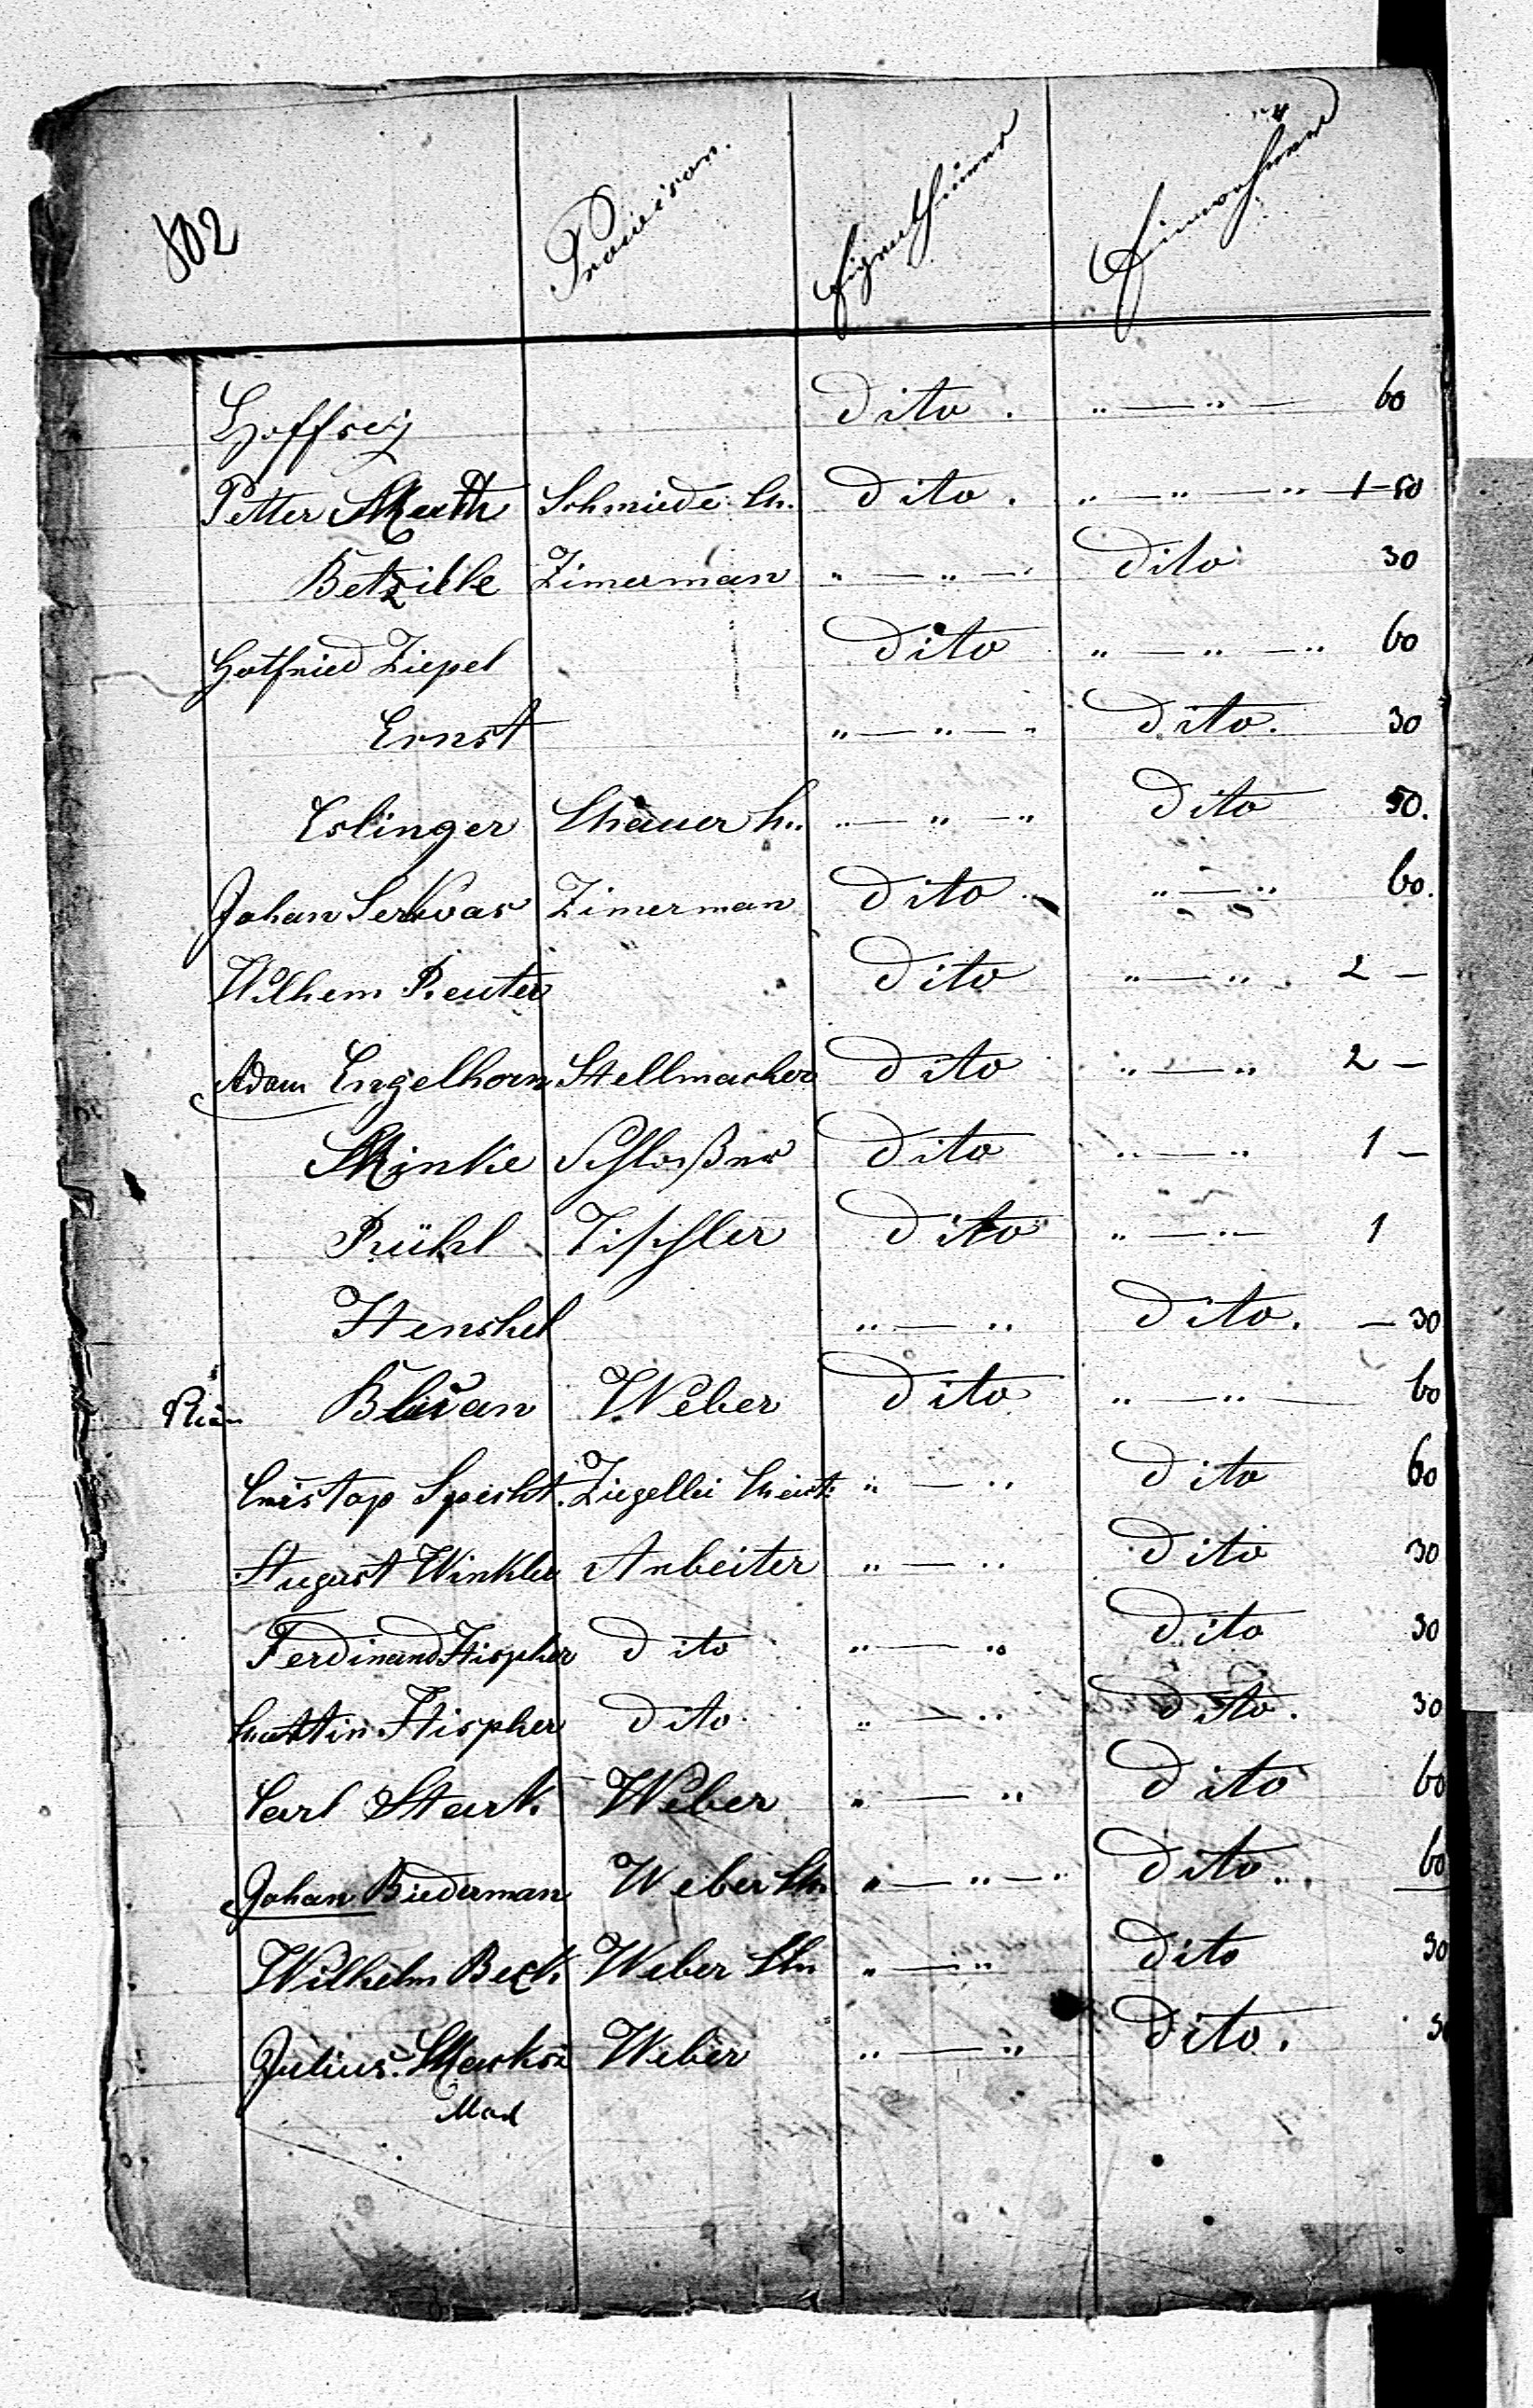 102 Provision. Eigenthümer Einwohner
Hoffrey dito . " — " — 60
Petter Muth Schmiede M. dito . " — " — " — 1–50
Betzille Zimerman " — " — " dito 30
Gotfried Ziepel dito " — " — " 60
Ernst " — " — " dito. 30
Eslinger Mauer M.. " — " — " dito 50.
Johan Servas Zimerman dito " — " 60.
Wilhem Reuter dito " — " . 2 –
Adam Engelhorn Stellmacher dito " — " 2 –
Minke Schloßer dito " — " 1 –
Rühl Tischler dito " — " — 1
Henshel " — " dito. – 30
Weber dito " — " — 60
Cristop Specht. Ziegellei Meist: " — " dito 60
August Winkler Arbeiter " — " dito 30
Ferdinand Hispher dito " — " dito 30
Martin Hispher dito " — " dito. 30
Carl Stark Weber " — " dito 60
Johan Biederman Weber M. " — " — " dito . . 60
Wilhelm Beck Weber M. " — " dito 30
Julius. Weber " — " dito .